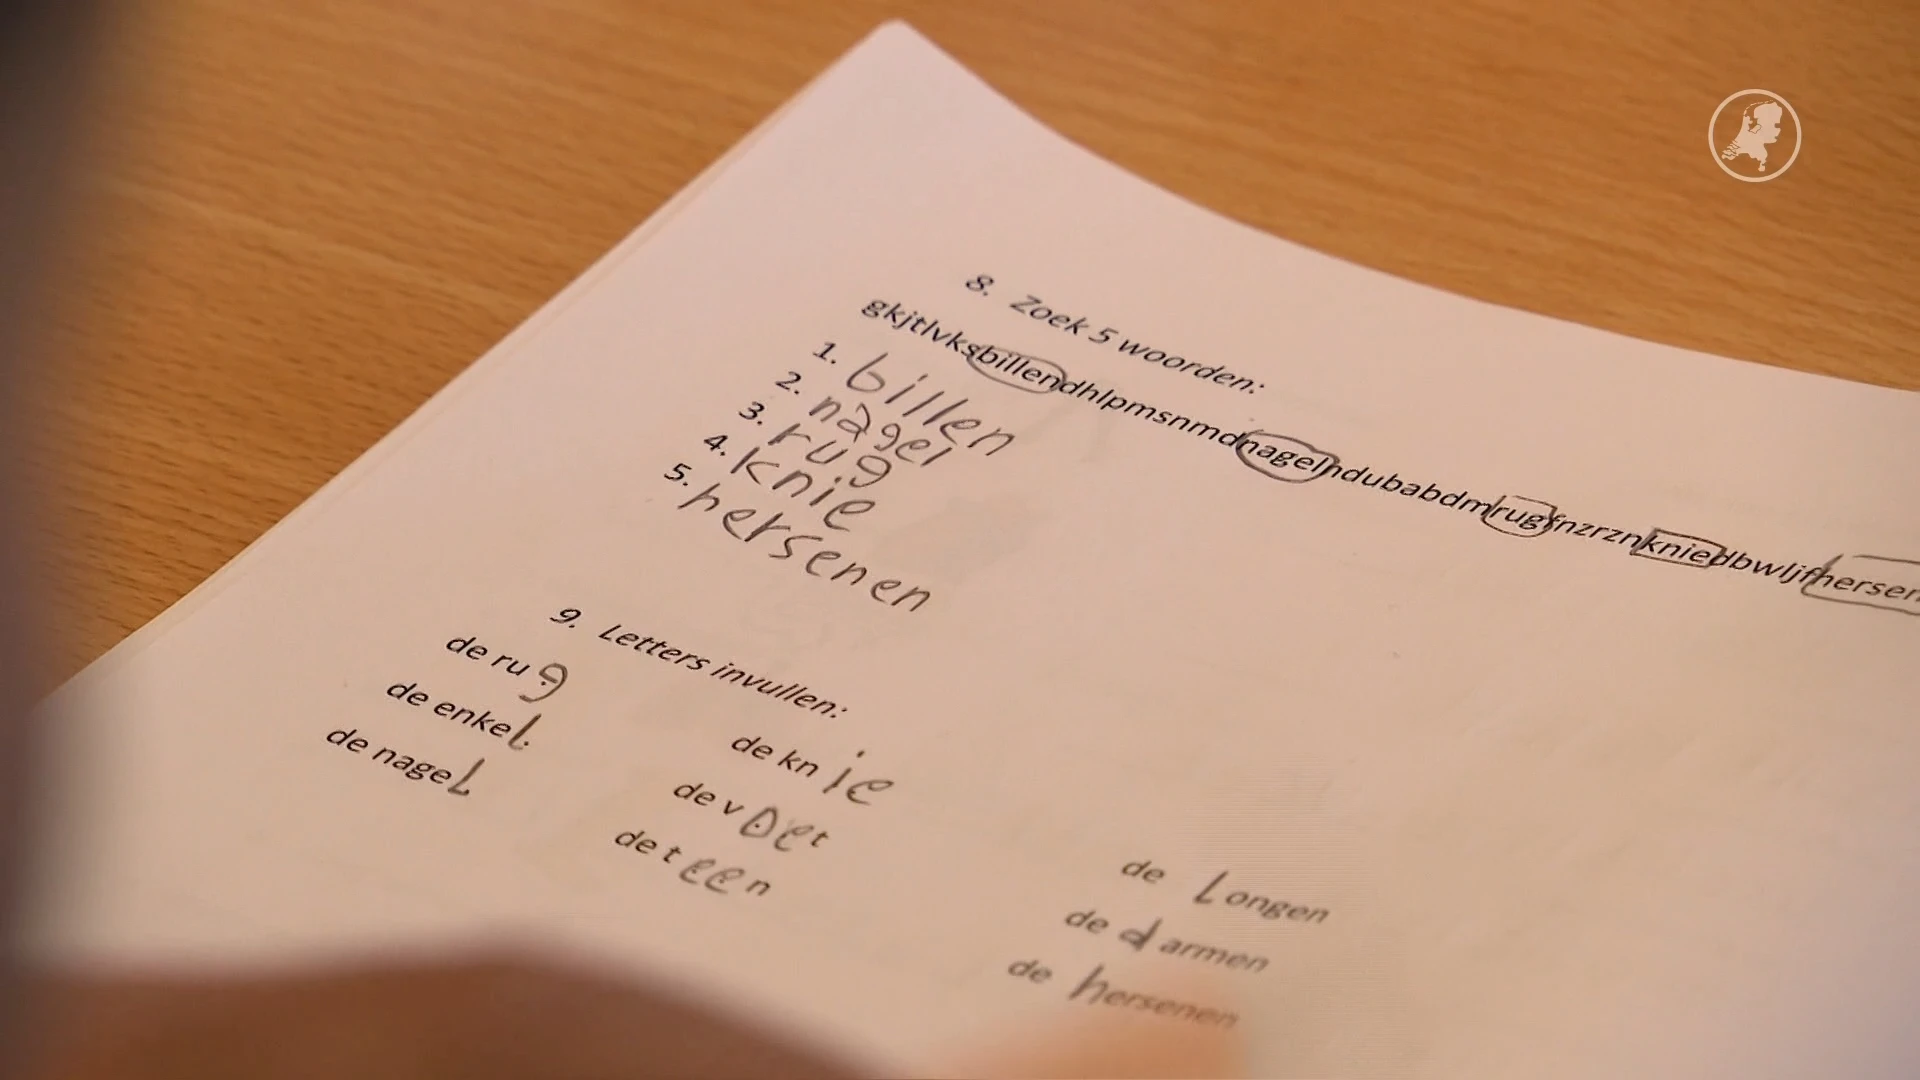 8. Zoek 5 woorden:
gkjtlvksbillendhlpmsnmdnagelndubabdmrugfnzrznkniedbwljfhersen
1. billen
2. nagel
3. rug
4. knie
5. hersenen
9. Letters invullen:
de rug
de enkel
de nagel
de knie
de voet
de teen
de Longen
de darmen
de hersenen